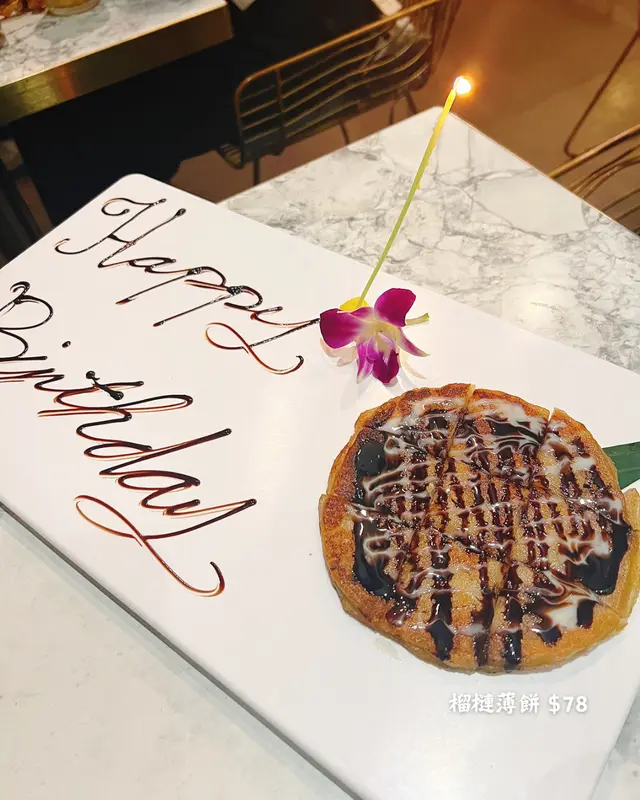 Happy
Birthday
榴槤薄餅 $78